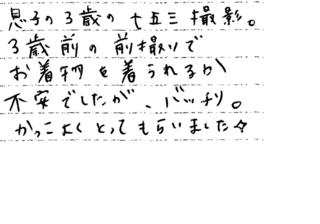 息子の3歳の十五三撮影。
3歳前の前撮りで
お着物を着られるか
不安でしたが、バッチリ。
かっこよくとってもらいました☆